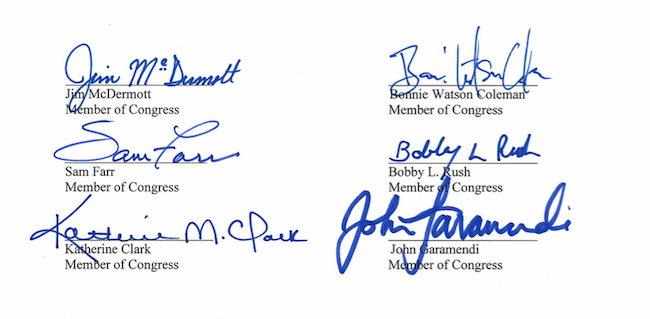 Jim McDermott
Jim McDermott
Member of Congress
Bonnie Watson Coleman
Member of Congress
Sam Farr
Sam Farr
Member of Congress
Bobby L Rush
Bobby L. Rush
Member of Congress
Katherine M. Clark
Katherine Clark
Member of Congress
John Garamendi
John Garamendi
Member of Congress